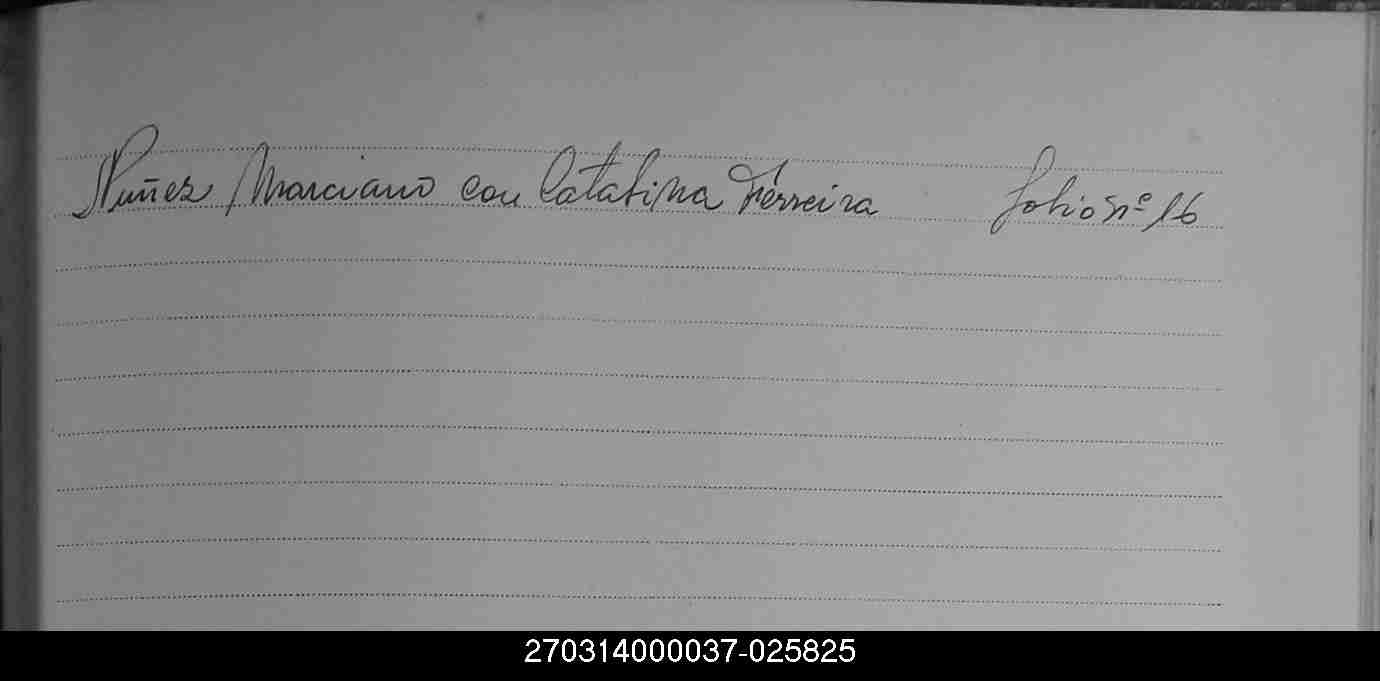 Nuñez Marciano con Catalina Ferreira Folio nº 16
270314000037-025825